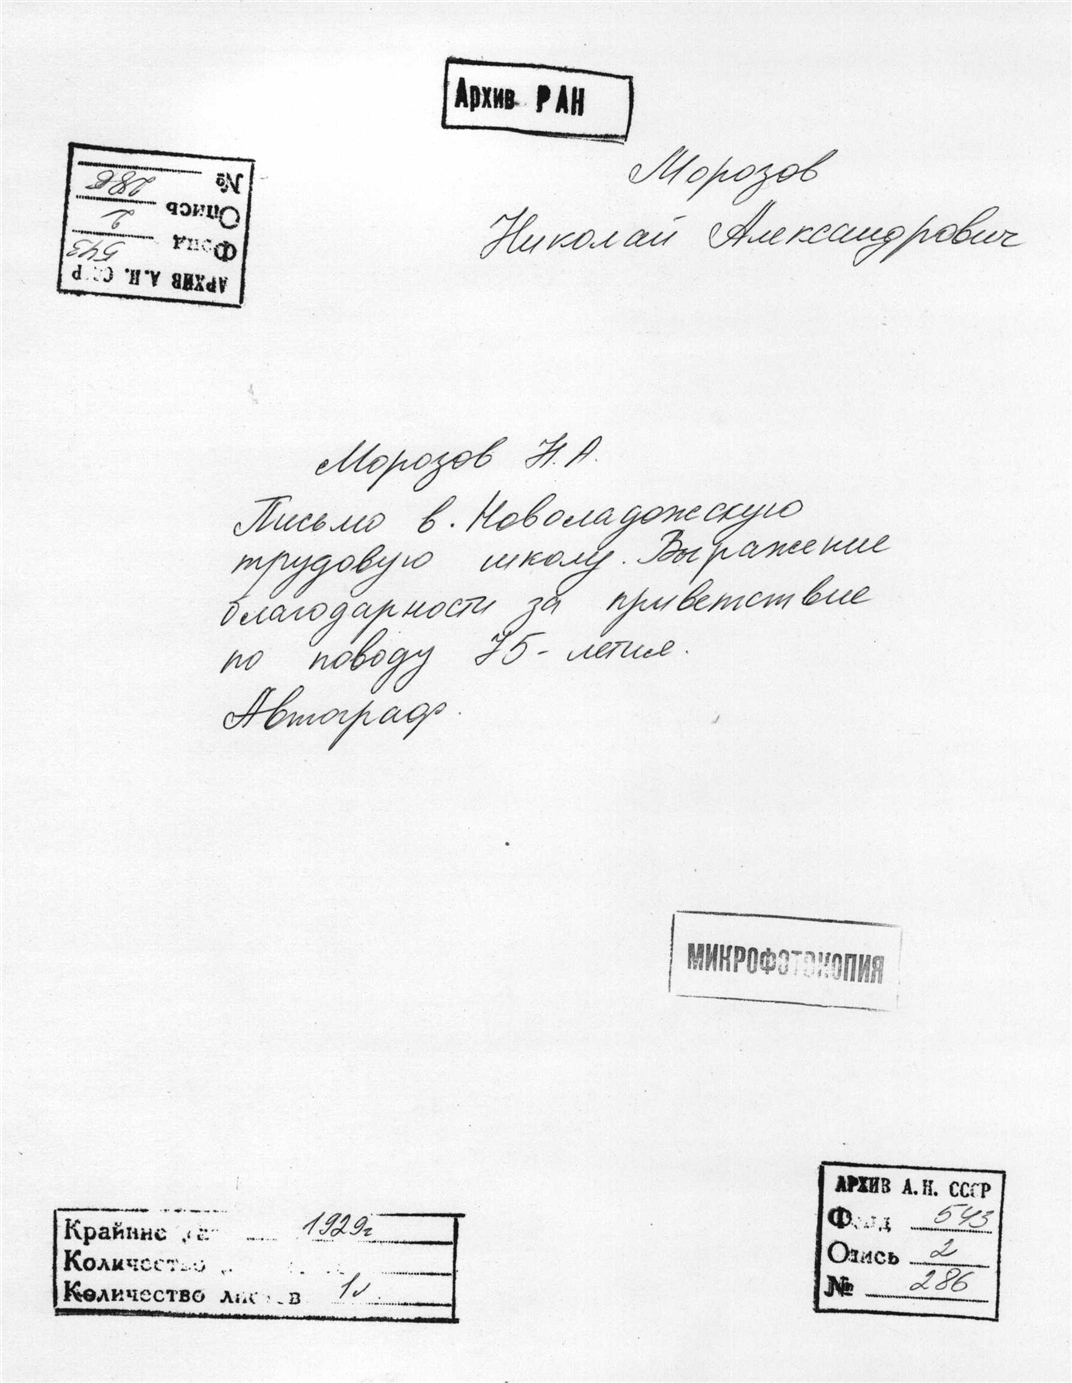 Архив РАН
Морозов
Николай Александрович
АРХИВ А.Н. СССР
Фонд 543
Опись 2
№ 286
Морозов Н.А.
Письмо в. Новоладожскую
трудовую школу. Выражение
благодарности за приветствие
по поводу 75-летия.
Автограф.
МИКРОФОТОКОПИЯ
Крайние 1929г
Количество
Количество листов 1л.
АРХИВ А.Н. СССР
Фонд 543
Опись 2
№ 286